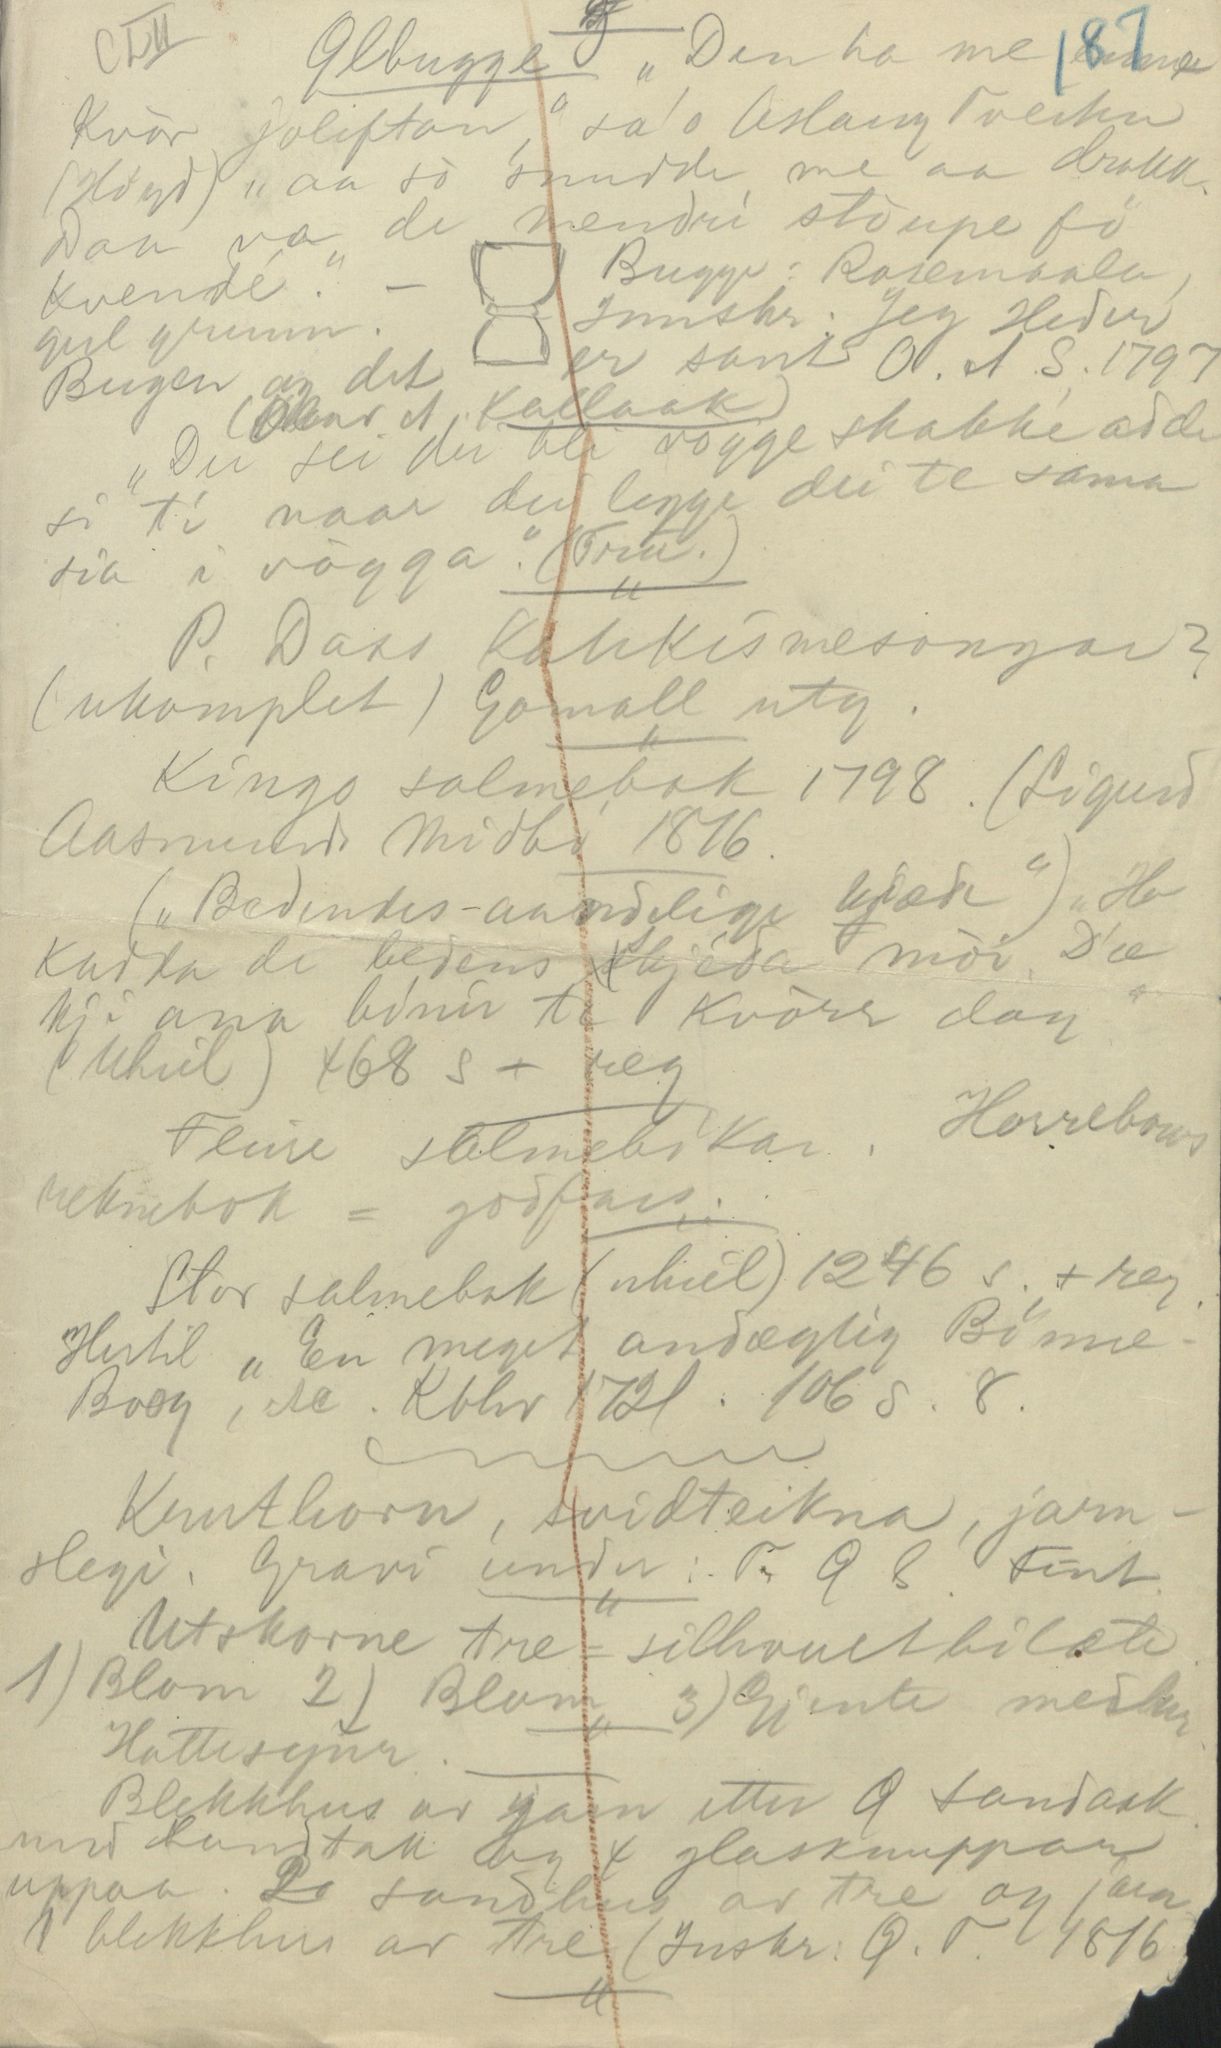 CLII 187
Ølbugge „Den ha me
Kvòr joliftan," sa'o Aslaug Tveitn
(Høyd) „aa so snudde me aa drakk.
Daa va de mendri stòupe fö
kvende." - Bugge: Rosemaala,
gul grunn. Innskr: Jeg Heder
Bugen og det er sant O. A. S. 1797
(Olav A. Kallaak)
„Dei sei dei bli vògge skakke adde
si ti naar dei legge dei te sama
sia i vògga." (Tru.)
P. Dass Katekismesongar?
(ukomplet) Gamall utg.
Kingo salmebok 1798. (Sigurd
Aasmunds Midbö 1816.
(„Bedendes-aandelige kjæde") „Ho
kadda de bedens kjéda mòi. D'æ
kji ana bönir te kvòrr dag"
(Uheil) 468 s + reg
Fleire salmebökar. Horrebows
reknebok = godfars.
Stor salmebok (uheil) 1246 s. + reg.
Hertil „En meget andægtig Bönne-
Boog, etc. Kbhv 1721. 106 s. 8.
Krutthorn, svidteikna, jarn-
slegi. Gravi under: T. Q S. Fint.
Utskorne tre= silhouetbilæte
1) Blom 2) Blom 3) Gjente med
Hattesynr.
Blekkhus av jarn etter O Sandaak
med handtak og 4 glasknuppar
uppaa. 2 sandhus av tre og jarn
1 blekkhus av tre (Inskr: O. T. 1816